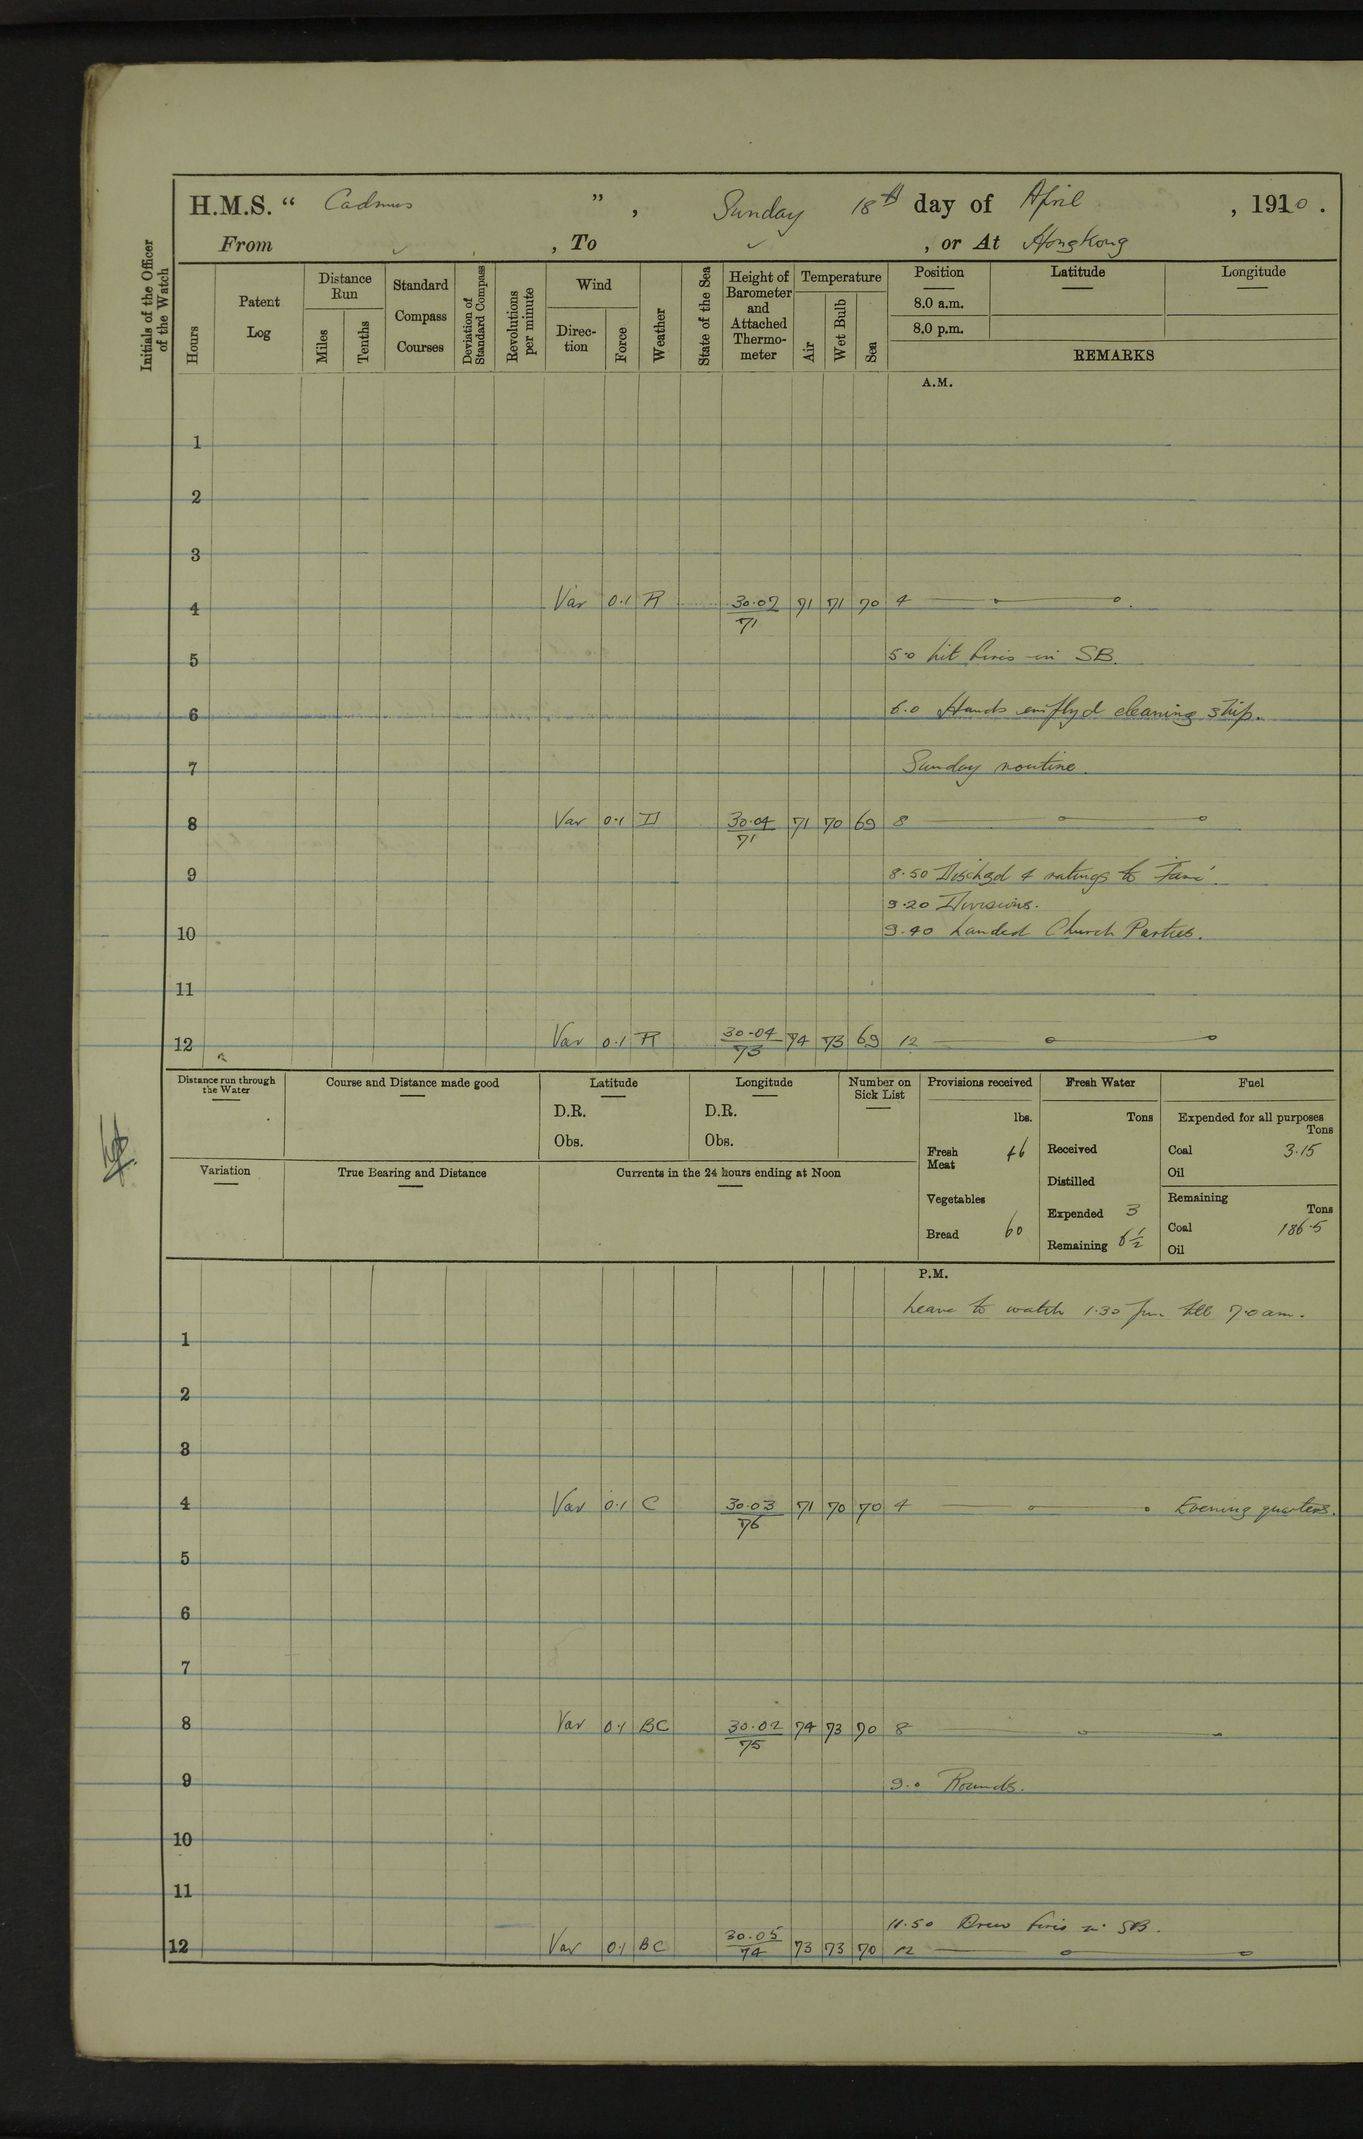 H.M.S. “ Cadmus ” , Sunday 18th day of April , 1910 .
From ✓ , To ✓ , or At HongKong
Initials of the Officer of the Watch
Hours
Patent Log
Distance Run
Miles
Tenths
Standard Compass Courses
Deviation of Standard Compass
Revolutions per minute
Wind
Direc-tion
Force
Weather
State of the Sea
Height of Barometer and Attached Thermo-meter
Temperature
Air
Wet Bulb
Sea
Position
Latitude
Longitude
8.0 a.m.
8.0 p.m.
REMARKS
A.M.
1
2
3
4 Var 0.1 R 30.02/71 71 71 70 4
5 5.0 Lit fires in SB.
6 6.0 Hands employd cleaning ship.
7 Sunday routine.
8 Var 0.1 D 30.04/71 71 70 69 8
9 8.50 Dischgd 4 ratings to 'Tam'.
9.20 Divisions.
10 9.40 Landed Church Parties.
11
12 Var 0.1 R 30.04/73 74 73 69 12
Distance run through the Water
Course and Distance made good
Latitude
D.R.
Obs.
Longitude
D.R.
Obs.
Number on Sick List
Provisions received
lbs.
Fresh Meat 46
Vegetables
Bread 60
Fresh Water
Tons
Received
Distilled
Expended 3
Remaining 6½
Fuel
Expended for all purposes
Tons
Coal 3.15
Oil
Remaining
Tons
Coal 186.5
Oil
Variation
True Bearing and Distance
Currents in the 24 hours ending at Noon
P.M.
Leave to watch 1.30 pm till 7.0 am.
1
2
3
4 Var 0.1 C 30.03/76 71 70 70 4 Evening quarters.
5
6
7
8 Var 0.1 BC 30.02/75 74 73 70 8
9 9.0 Rounds.
10
11
11.50 Drew fires in SB.
12 Var 0.1 BC 30.05/74 73 73 70 12